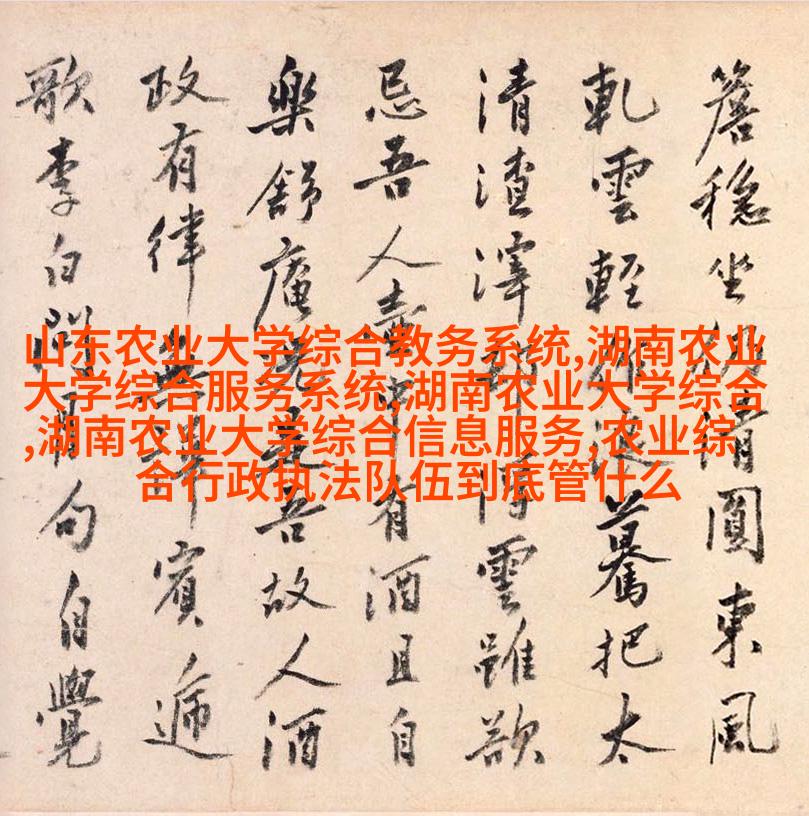 山东农业大学综合教务系统,湖南农业
大学综合服务系统,湖南农业大学综合
,湖南农业大学综合信息服务,农业综
合行政执法队伍到底管什么
簷穩坐清圓東風
軋雲輕驀把太
清渣滓雲雖欲
忌吾人壺中有酒且自
樂舒庵老矣吾故人酒
政有律無算賓遞
歌李白問月句自覺